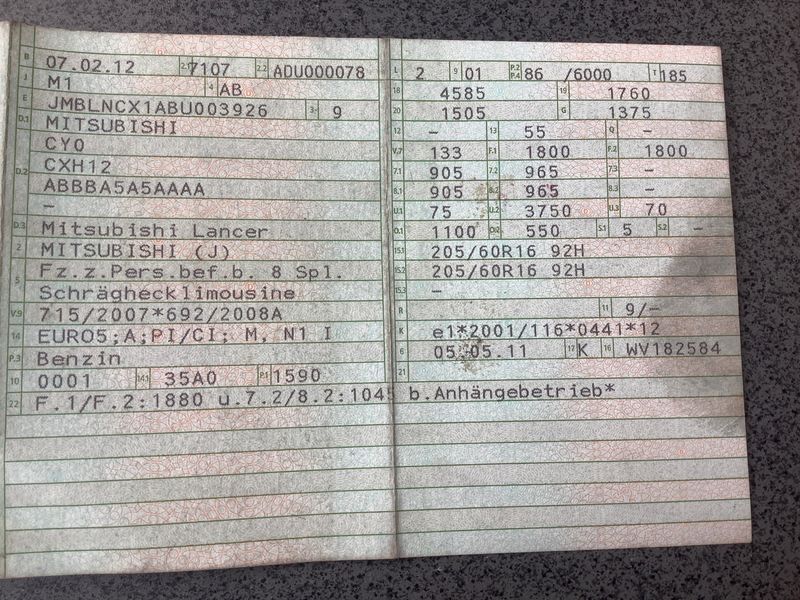 B 07.02.12 2.1 7107 2.2 ADU000078
J M1 4 AB
E JMBLNCX1ABU003926 3 9
D.1 MITSUBISHI
CY0
D.2 CXH12
ABBBA5A5AAAA
–
D.3 Mitsubishi Lancer
2 MITSUBISHI (J)
5 Fz.z.Pers.bef.b. 8 Spl.
Schräghecklimousine
V.9 715/2007*692/2008A
14 EURO5;A;PI/CI; M, N1 I
P.3 Benzin
10 0001 14.1 35A0 P.1 1590
22 F.1/F.2:1880 u.7.2/8.2:1045 b.Anhängebetrieb*
L 2 9 01 P.2 P.4 86 /6000 T 185
18 4585 19 1760
20 1505 G 1375
12 – 13 55 Q –
V.7 133 F.1 1800 F.2 1800
7.1 905 7.2 965 7.3 –
8.1 905 8.2 965 8.3 –
U.1 75 U.2 3750 U.3 70
O.1 1100 O.2 550 S.1 5 S.2 –
15.1 205/60R16 92H
15.2 205/60R16 92H
15.3 –
R 11 9/–
K e1*2001/116*0441*12
6 05.05.11 17 K 16 WV182584
21